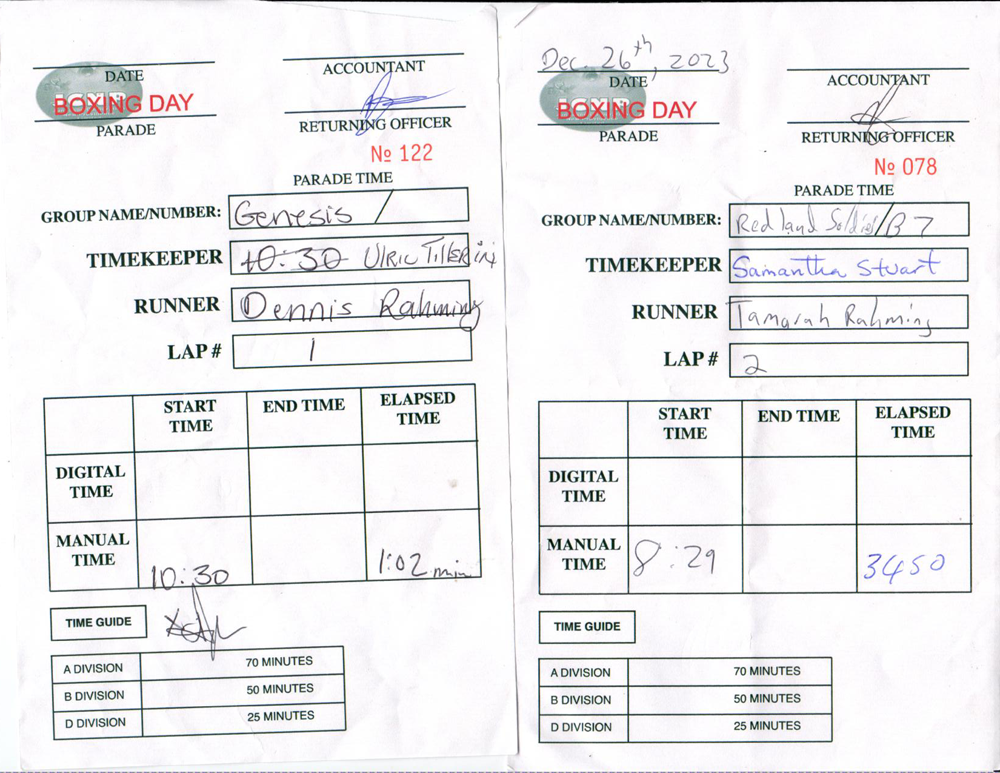 DATE
ACCOUNTANT
BOXING DAY
PARADE
RETURNING OFFICER
№ 122
PARADE TIME
GROUP NAME/NUMBER: Genesis /
TIMEKEEPER 10:30 Ulric
RUNNER Dennis Rahming
LAP # 1
START TIME END TIME ELAPSED TIME
DIGITAL TIME
MANUAL TIME 10:30 1:02 min
TIME GUIDE
A DIVISION 70 MINUTES
B DIVISION 50 MINUTES
D DIVISION 25 MINUTES
Dec. 26th, 2023
DATE
ACCOUNTANT
BOXING DAY
PARADE
RETURNING OFFICER
№ 078
PARADE TIME
GROUP NAME/NUMBER: Redland Soldier/B7
TIMEKEEPER Samantha Stuart
RUNNER Tamarah Rahming
LAP # 2
START TIME END TIME ELAPSED TIME
DIGITAL TIME
MANUAL TIME 8:29 3450
TIME GUIDE
A DIVISION 70 MINUTES
B DIVISION 50 MINUTES
D DIVISION 25 MINUTES